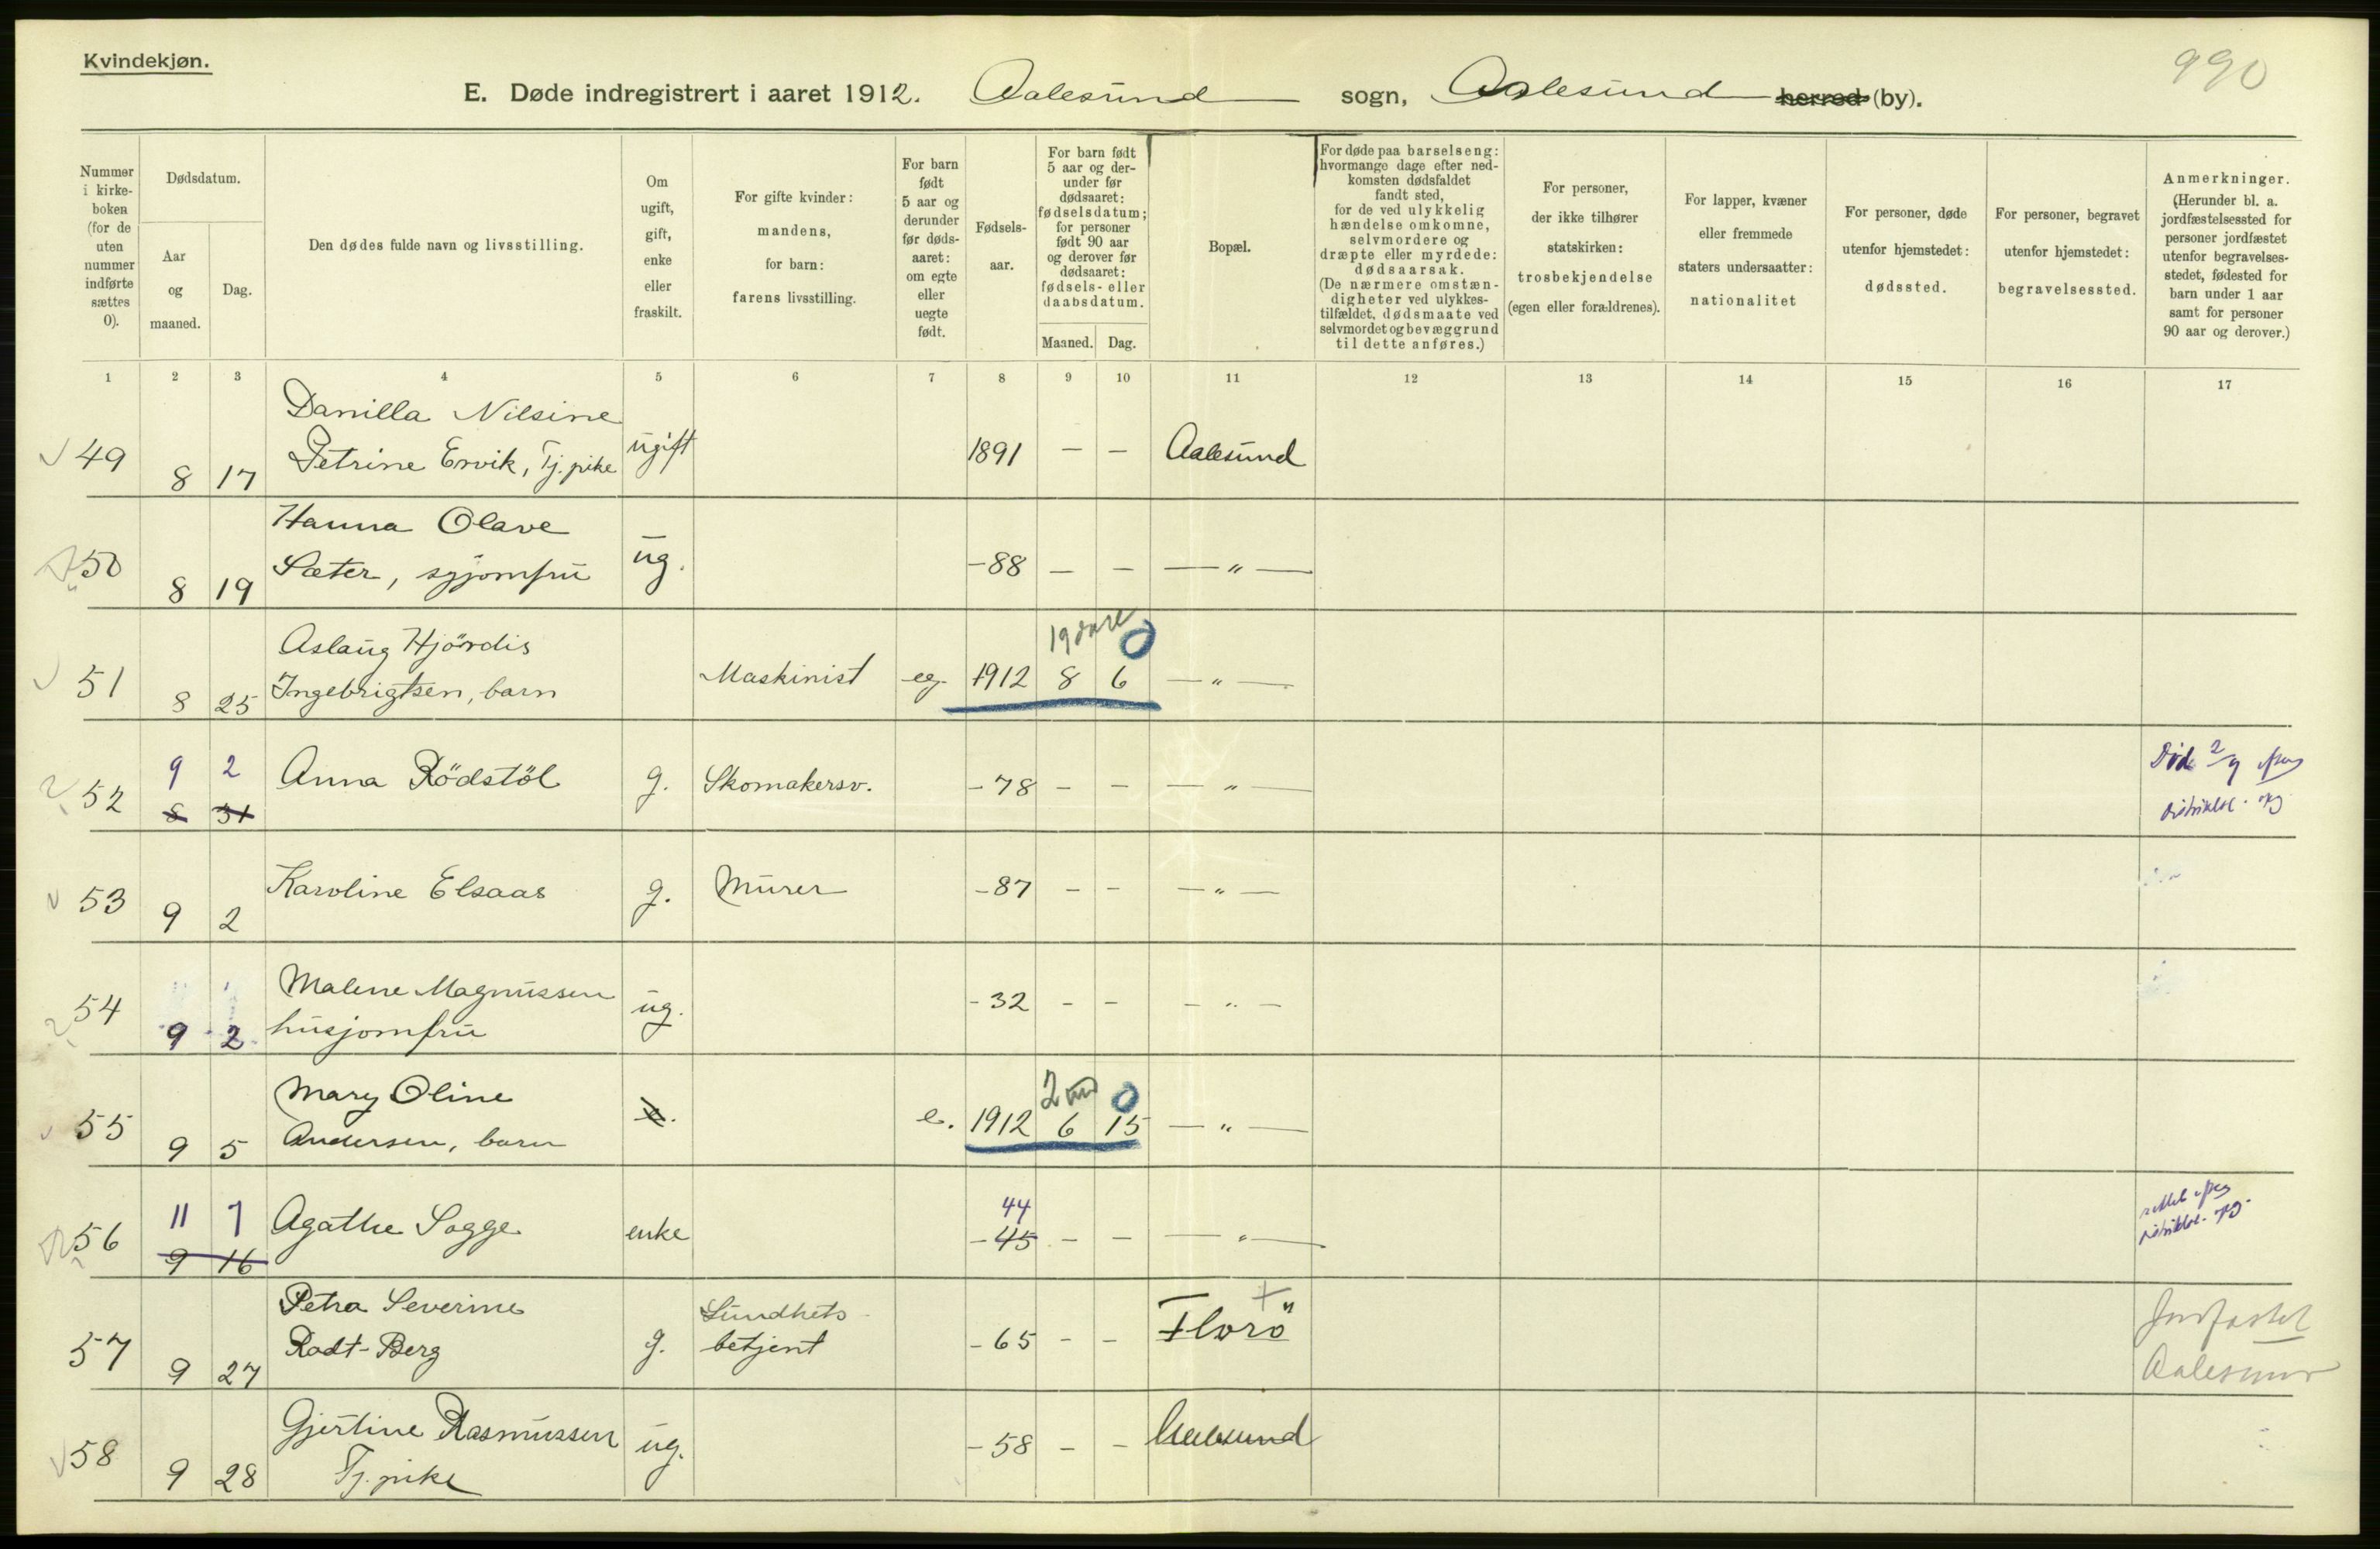 Kvindekjøn.
990
E. Døde indregistrert i aaret 1912. Aalesund sogn, Aalesund herred (by).
Nummer i kirkeboken (for de uten nummer indførte sættes 0).
Dødsdatum.
Aar og maaned.
Dag.
Den dødes fulde navn og livsstilling.
Om ugift, gift, enke eller fraskilt.
For gifte kvinder: mandens, for barn: farens livsstilling.
For barn født 5 aar og derunder før dødsaaret: om egte eller uegte født.
Fødselsaar.
For barn født 5 aar og derunder før dødsaaret: fødselsdatum; for personer født 90 aar og derover før dødsaaret: fødsels- eller daabsdatum.
Maaned. Dag.
Bopæl.
For døde paa barselseng: hvormange dage efter nedkomsten dødsfaldet fandt sted, for de ved ulykkelig hændelse omkomne, selvmordere og dræpte eller myrdede: dødsaarsak. (De nærmere omstændigheter ved ulykkestilfældet, dødsmaate ved selvmordet og bevæggrund til dette anføres.)
For personer, der ikke tilhører statskirken: trosbekjendelse (egen eller forældrenes).
For lapper, kvæner eller fremmede staters undersaatter: nationalitet
For personer, døde utenfor hjemstedet: dødssted.
For personer, begravet utenfor hjemstedet: begravelsessted.
Anmerkninger. (Herunder bl. a. jordfæstelsessted for personer jordfæstet utenfor begravelsesstedet, fødested for barn under 1 aar samt for personer 90 aar og derover.)
1 2 3 4 5 6 7 8 9 10 11 12 13 14 15 16 17
Danilla Nilsine
49 8 17 Petrine Ervik, Tj.pike ugift 1891 — — Aalesund
Hanna Olave
50 8 19 Sæter, syjomfru ug. -88 — — — " —
19 dare 0
Aslaug Hjördis
51 8 25 Ingebrigtsen, barn Maskinist eg. 1912 8 6 — " —
9 2 Død 2/9
52 8 31 Anna Rödstöl g. Skomakersv. -78 - - — " —
53 9 2 Karoline Elsaas g. Murer -87 - - — " —
Malene Magnussen
54 9 2 husjomfru ug. -32 - - — " —
Mary Oline 2 0
55 9 5 Andersen, barn e. 1912 6 15 — " —
11 7 44
56 9 16 Agathe Sogge enke -45 - — — " —
Petra Severine Sundhets-
57 9 27 Rodt-Berg g. betjent -65 - - Florö
Jordfæstet
Aalesund
Gjertine Rasmussen
58 9 28 Tj.pike ug. -58 - - Aalesund